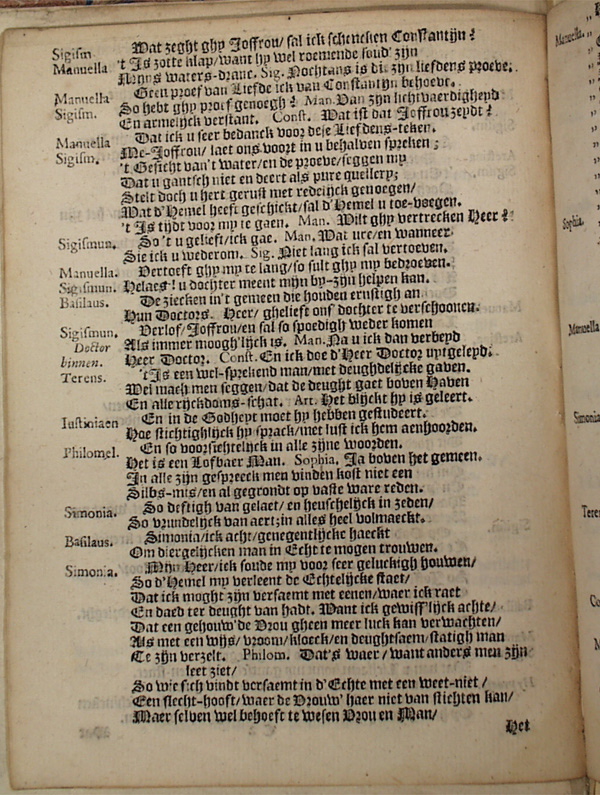 Wat zeght ghy Joffrou/ sal ick schencken Constantijn?
Sigism. 't Is zotte klap/ want hy wel roemende soud' zijn
Manuella Mijns waters-dranc. Sig. Nochtans is dit zijn liefdens proeve.
Geen proef van Liefde ick van Constantijn behoeve.
Manuella So hebt ghy proef genoegh? Man. Van zijn lichtvaerdigheyd
Sigism. En armelijck verstant. Const. Wat ist dat Joffrou zeydt?
Dat ick u seer bedanck voor dese Liefdens-teken.
Manuella Me-Joffrou/ laet ons voort in u behalven spreken;
Sigism. 't Gesicht van 't water/ en de proeve/ seggen my
Dat u gantsch niet en deert als pure quellery;
Stelt doch u hert gerust met redelijck genoegen/
Wat d'Hemel heeft geschickt/ sal d'Hemel u toe-voegen.
't Is tijdt voor my te gaen. Man. Wilt ghy vertrecken Heer?
Sigismun. So 't u gelieft/ ick gae. Man. Wat ure/ en wanneer
Sie ick u wederom. Sig. Niet lang ick sal vertoeven.
Manuella. Vertoeft ghy my te lang/ so sult ghy my bedroeven.
Sigismun. Helaes! u dochter meent mijn by-zijn helpen kan.
Basilaus. De ziecken in 't gemeen die houden ernstigh an
Hun Doctors. Heer/ ghelieft ons dochter te verschoonen.
Sigismun. Verlof/ Joffrou/ en sal so spoedigh weder komen
Doctor Als immer moogh'lijck is. Man. Na u ick dan verbeyd
binnen. Heer Doctor. Const. En ick doe d'Heer Doctor uytgeleyd.
Terens. 't Is een wel-sprekend man/ met deughdelijcke gaven.
Wel mach men seggen/ dat de deught gaet boven Haven
En alle rijckdoms-schat. Art. Het blijckt hy is geleert.
Iustiniaen En in de Godheyt moet hy hebben gestudeert.
Hoe stichtighlijck hy sprack/ met lust ick hem aenhoorden.
Philomel. En so voorsichtelijck in alle zijne woorden.
Het is een Lofbaer Man. Sophia. Ja boven het gemeen.
In alle zijn gespreeck men vinden kost niet een
Silbs-mis/ en al gegrondt op vaste ware reden.
Simonia. So deftigh van gelaet/ en heuschelijck in zeden/
So vrundelijck van aert; in alles heel volmaeckt.
Basilaus. Simonia/ ick acht/ genegentlijcke haeckt
Om diergelijcken man in Echt te mogen trouwen.
Simonia. Mijn Heer/ ick soude my voor seer geluckigh houwen/
So d'Hemel my verleent de Echtelijcke staet/
Dat ick moght zijn versaemt met eenen/ waer ick raet
En daed ter deught van hadt. Want ick gewiss'lijck achte/
Dat een gehouw'de Vrou gheen meer luck kan verwachten/
Als met een wijs/ vroom/ kloeck/ en deughtsaem/ statigh man
Te zijn verzelt. Philom. Dat's waer/ want anders men zijn
leet ziet/
So wie sich vindt versaemt in d'Echte met een weet-niet/
Een slecht-hooft/ waer de Vrouw' haer niet van stichten kan/
Maer selven wel behoeft te wesen Vrou en Man/
Het
Manuella.
Sophia.
Manuella
Simonia
Terens